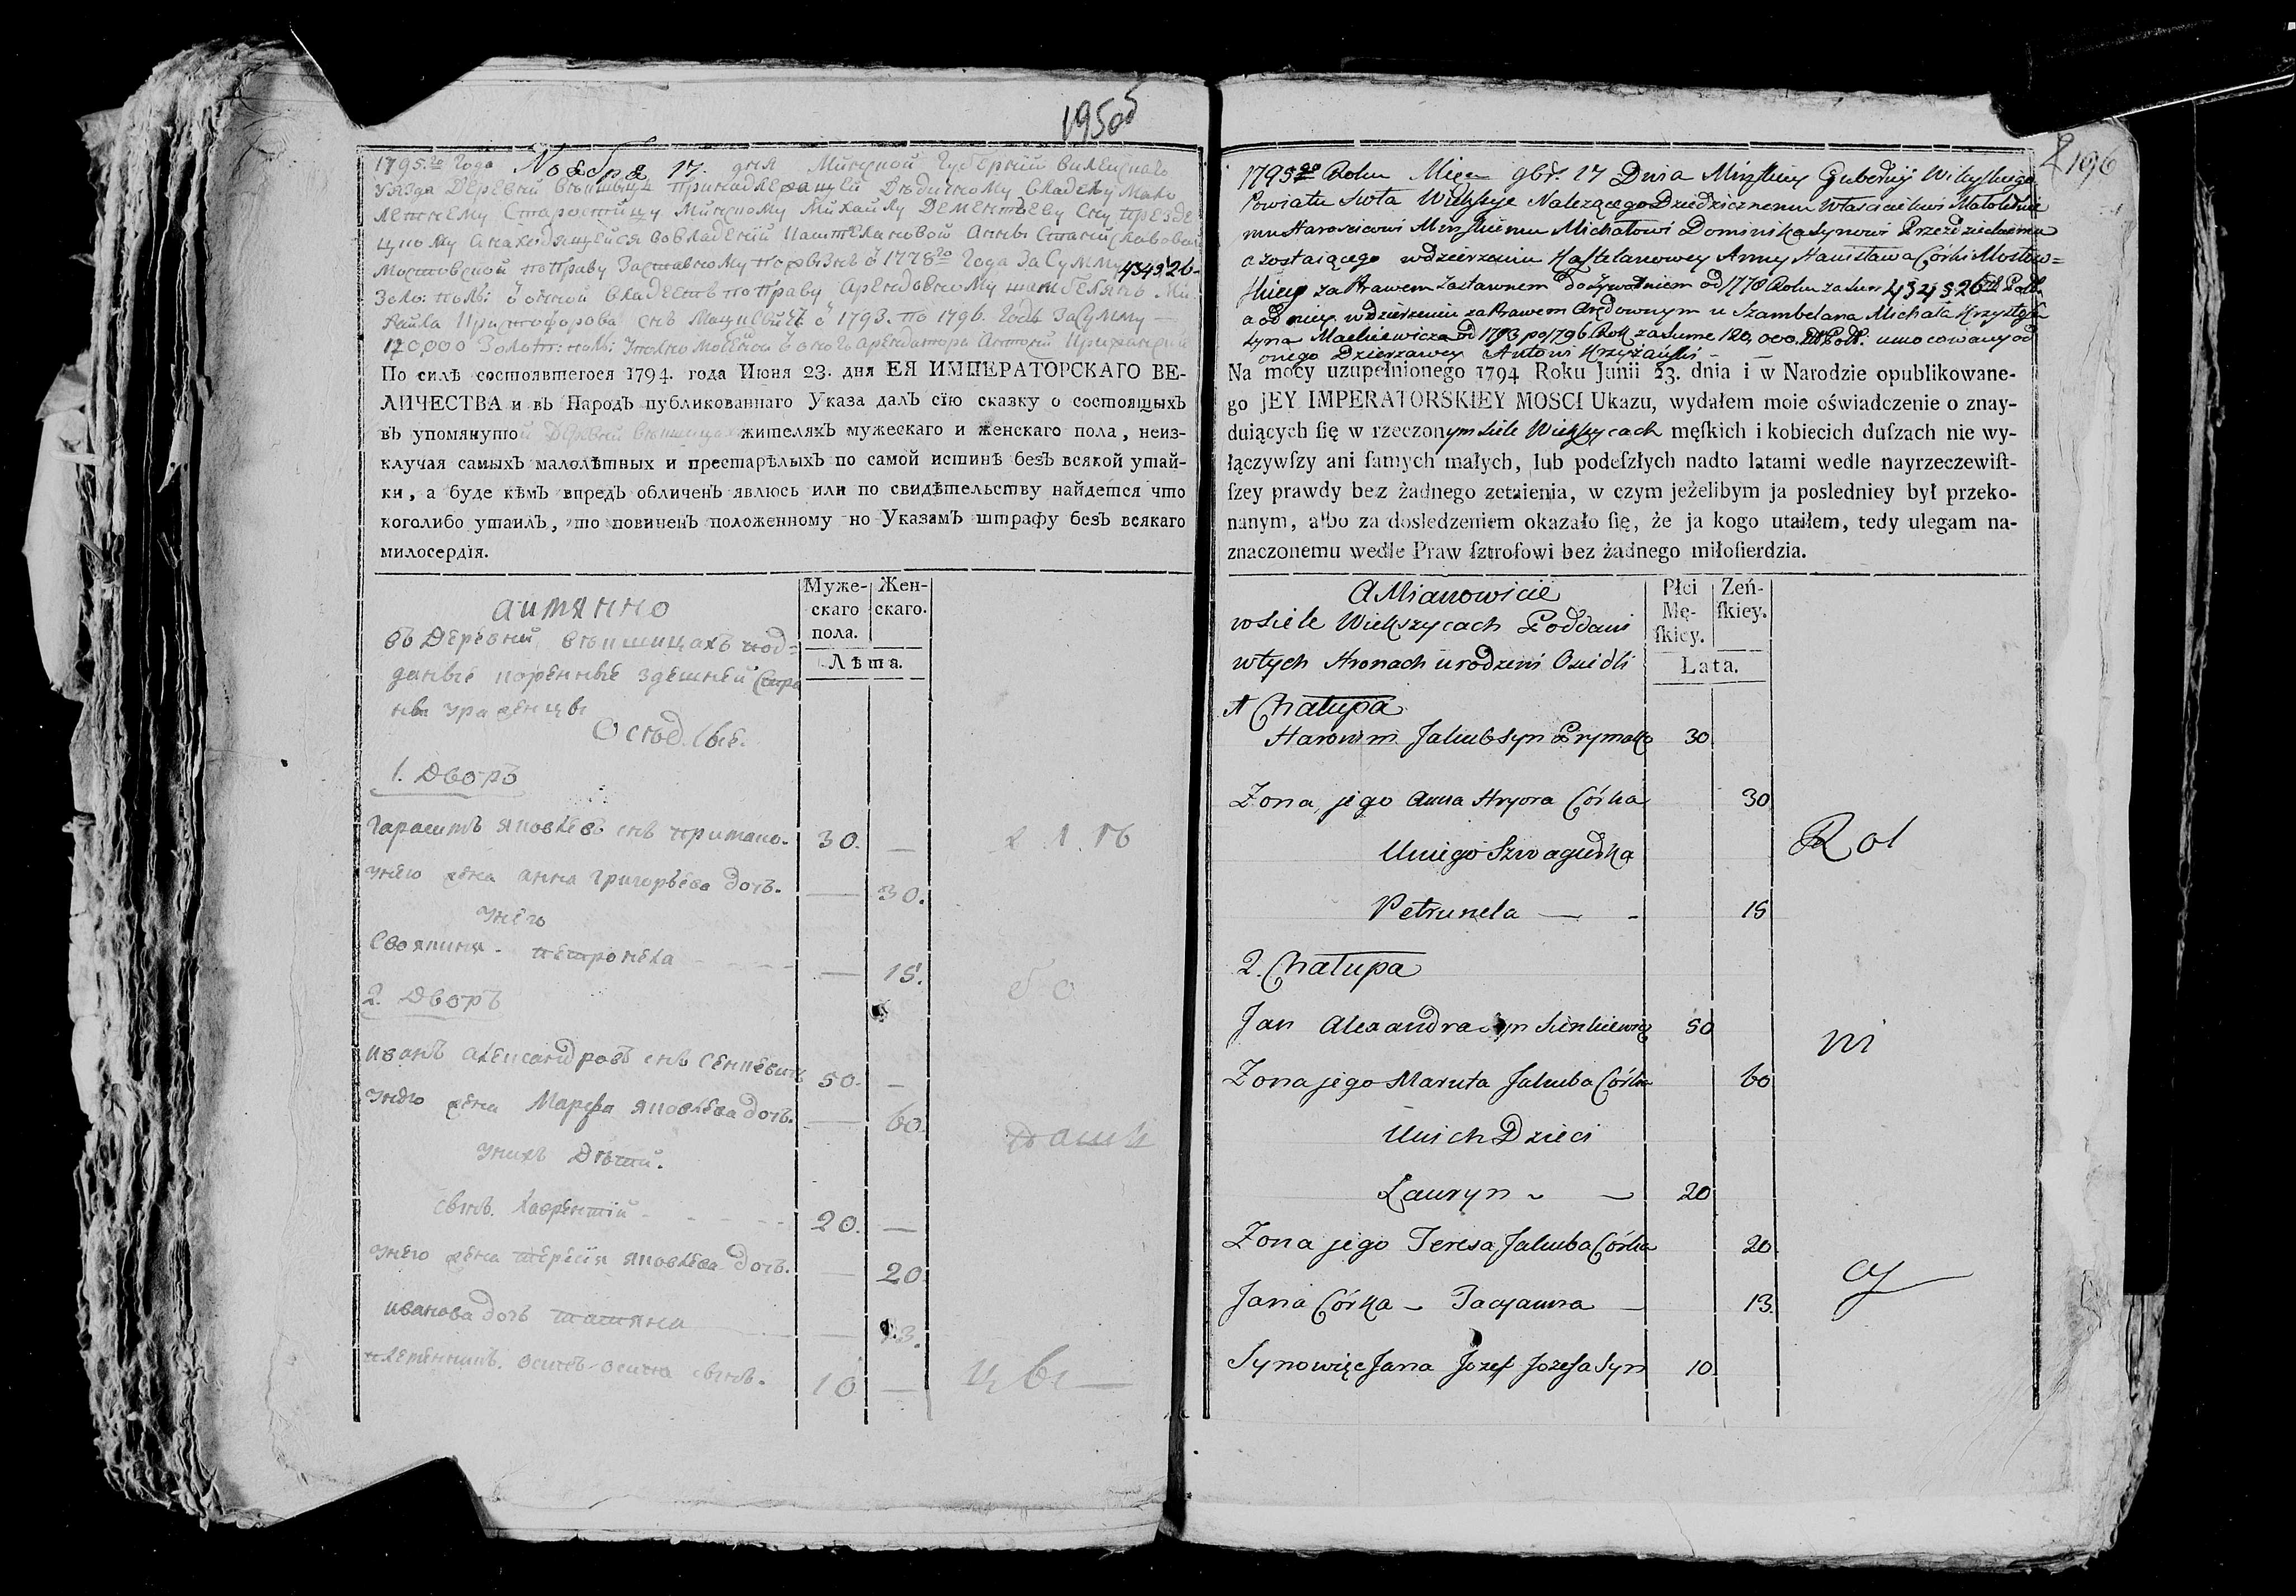 195об
1795.го Года Ноября 17. дня Минской Губернии Вилейскаго
уезда деревни принадлежащей владельцу мало
летнему Старостицу Минскому Михайлу Дементьеву сну Презде
цкому анаходящейся вовладении Каштеляновой Анны Станиславовой
Мостовской поправу Заставному 1778го Года За Сумму 434526
Золо: поль: оной владеетъ поправу арендовному шамбелянъ Ми
хайла Криштофорова снъ Мацкевичъ 1793. по 1796. Годъ Засумму —
120,000 Золот: поль: арендатора Антоній
По силѣ состоявшегося 1794. года Июня 23. дня ЕЯ ИМПЕРАТОРСКАГО ВЕ-
ЛИЧЕСТВА и въ Народъ публикованнаго Указа далъ сїю сказку о состоящыхъ
въ упомянутой деревни жителяхъ мужескаго и женскаго пола, неиз-
ключая самыхъ малолѣтных и престарѣлыхъ по самой истинѣ безъ всякой утай-
ки, а буде кѣмъ впредъ обличенъ явлюсь или по свидѣтельству найдется что
коголибо утаилъ, то повиненъ положенному по Указамъ штрафу безъ всякаго
милосердія.
Муже-
скаго
пола.
Жен-
скаго.
Лѣта.
аимянно
въ деревни под=
данные коренные здешней Сторо
ны уроженцы
Оседлые.
1. Дворъ
Гарасимъ Яковлевъ снъ 30. —
унего жена анна григорьева дочь. — 30.
унего
Свояпиня - петронела — 15.
2. Дворъ
иванъ александровъ снъ Сенкевичъ 50. —
унего жена Марфа яковлева дочь. — 60.
унихъ дѣти.
сынъ. Лаврентий 20. —
унего жена тересія яковлева дочь. — 20.
иванова дочь татяна — 13.
племенникъ. осипъ осипа сынъ. 10 —
цы —
196
1795go Roku Mięca 9br. 17 Dnia Minskiey Gubernij Wileyskiego
Powiatu Sioła Wiekszyc Nalezącego Dziedzicznemu Właścicielowi Małoletnie
mu Starościcowi Minskiemu Michałowi Dominika Synowi Przezdzieckiemu
a zostaiącego wdzierzeniu Kasztelanowey Anny Stanisława Córki Mostow=
skiey za Prawem Zastawnem Dożywotniem od 1778 Roku za Sum 434526 Zł Pol.
a od niey wdzierzeniu zaPrawem Arędownym u Szambelana Michała Krzysztofa
Syna Mackiewicza od 1793 po 1796 Rok za Sume 120,000. Zł Pol. umocowany od
onego Dzierzawcy Antoni Krzyżański
Na mocy uzupełnionego 1794 Roku Junii 23. dnia i w Narodzie opublikowane-
go JEY IMPERATORSKIEY MOSCI Ukazu, wydałem moie oświadczenie o znay-
duiących ſię w rzeczonym Siele Wiekszycach męſkich i kobiecich duſzach nie wy-
łączywſzy ani ſamych małych, lub podeſzłych nadto latami wedle nayrzeczewiſt-
ſzey prawdy bez żadnego zetaienia, w czym jeżelibym ja posledniey był przeko-
nanym, albo za dosledzeniem okazało ſię, że ja kogo utaiłem, tedy ulegam na-
znaczonemu wedle Praw ſztrofowi bez żadnego miłoſierdzia.
Płci
Mę-
ſkiey.
Zeń-
ſkiey.
Lata.
A Mianowicie
wSiele Wiekszycach Poddani
wtych Stronach urodzeni Osiedli
1 Chałupa
Haronim Jakub Syn Prymako 30
Zona jego Anna Hryora Córka 30
Uniego Szwagierka
Petrunela — - 15
2. Chałupa
Jan Alexandra Syn Sienkiewicz 50
Zona jego Maruta Jakuba Córka 60
Unich Dzieci
Łauryn - — 20
Zona jego Teresa Jakuba Córka 20
Jana Córka - Tacyanna — 13.
Synowięc Jana Jozef Jozefa Syn 10
Rol
ni
cy